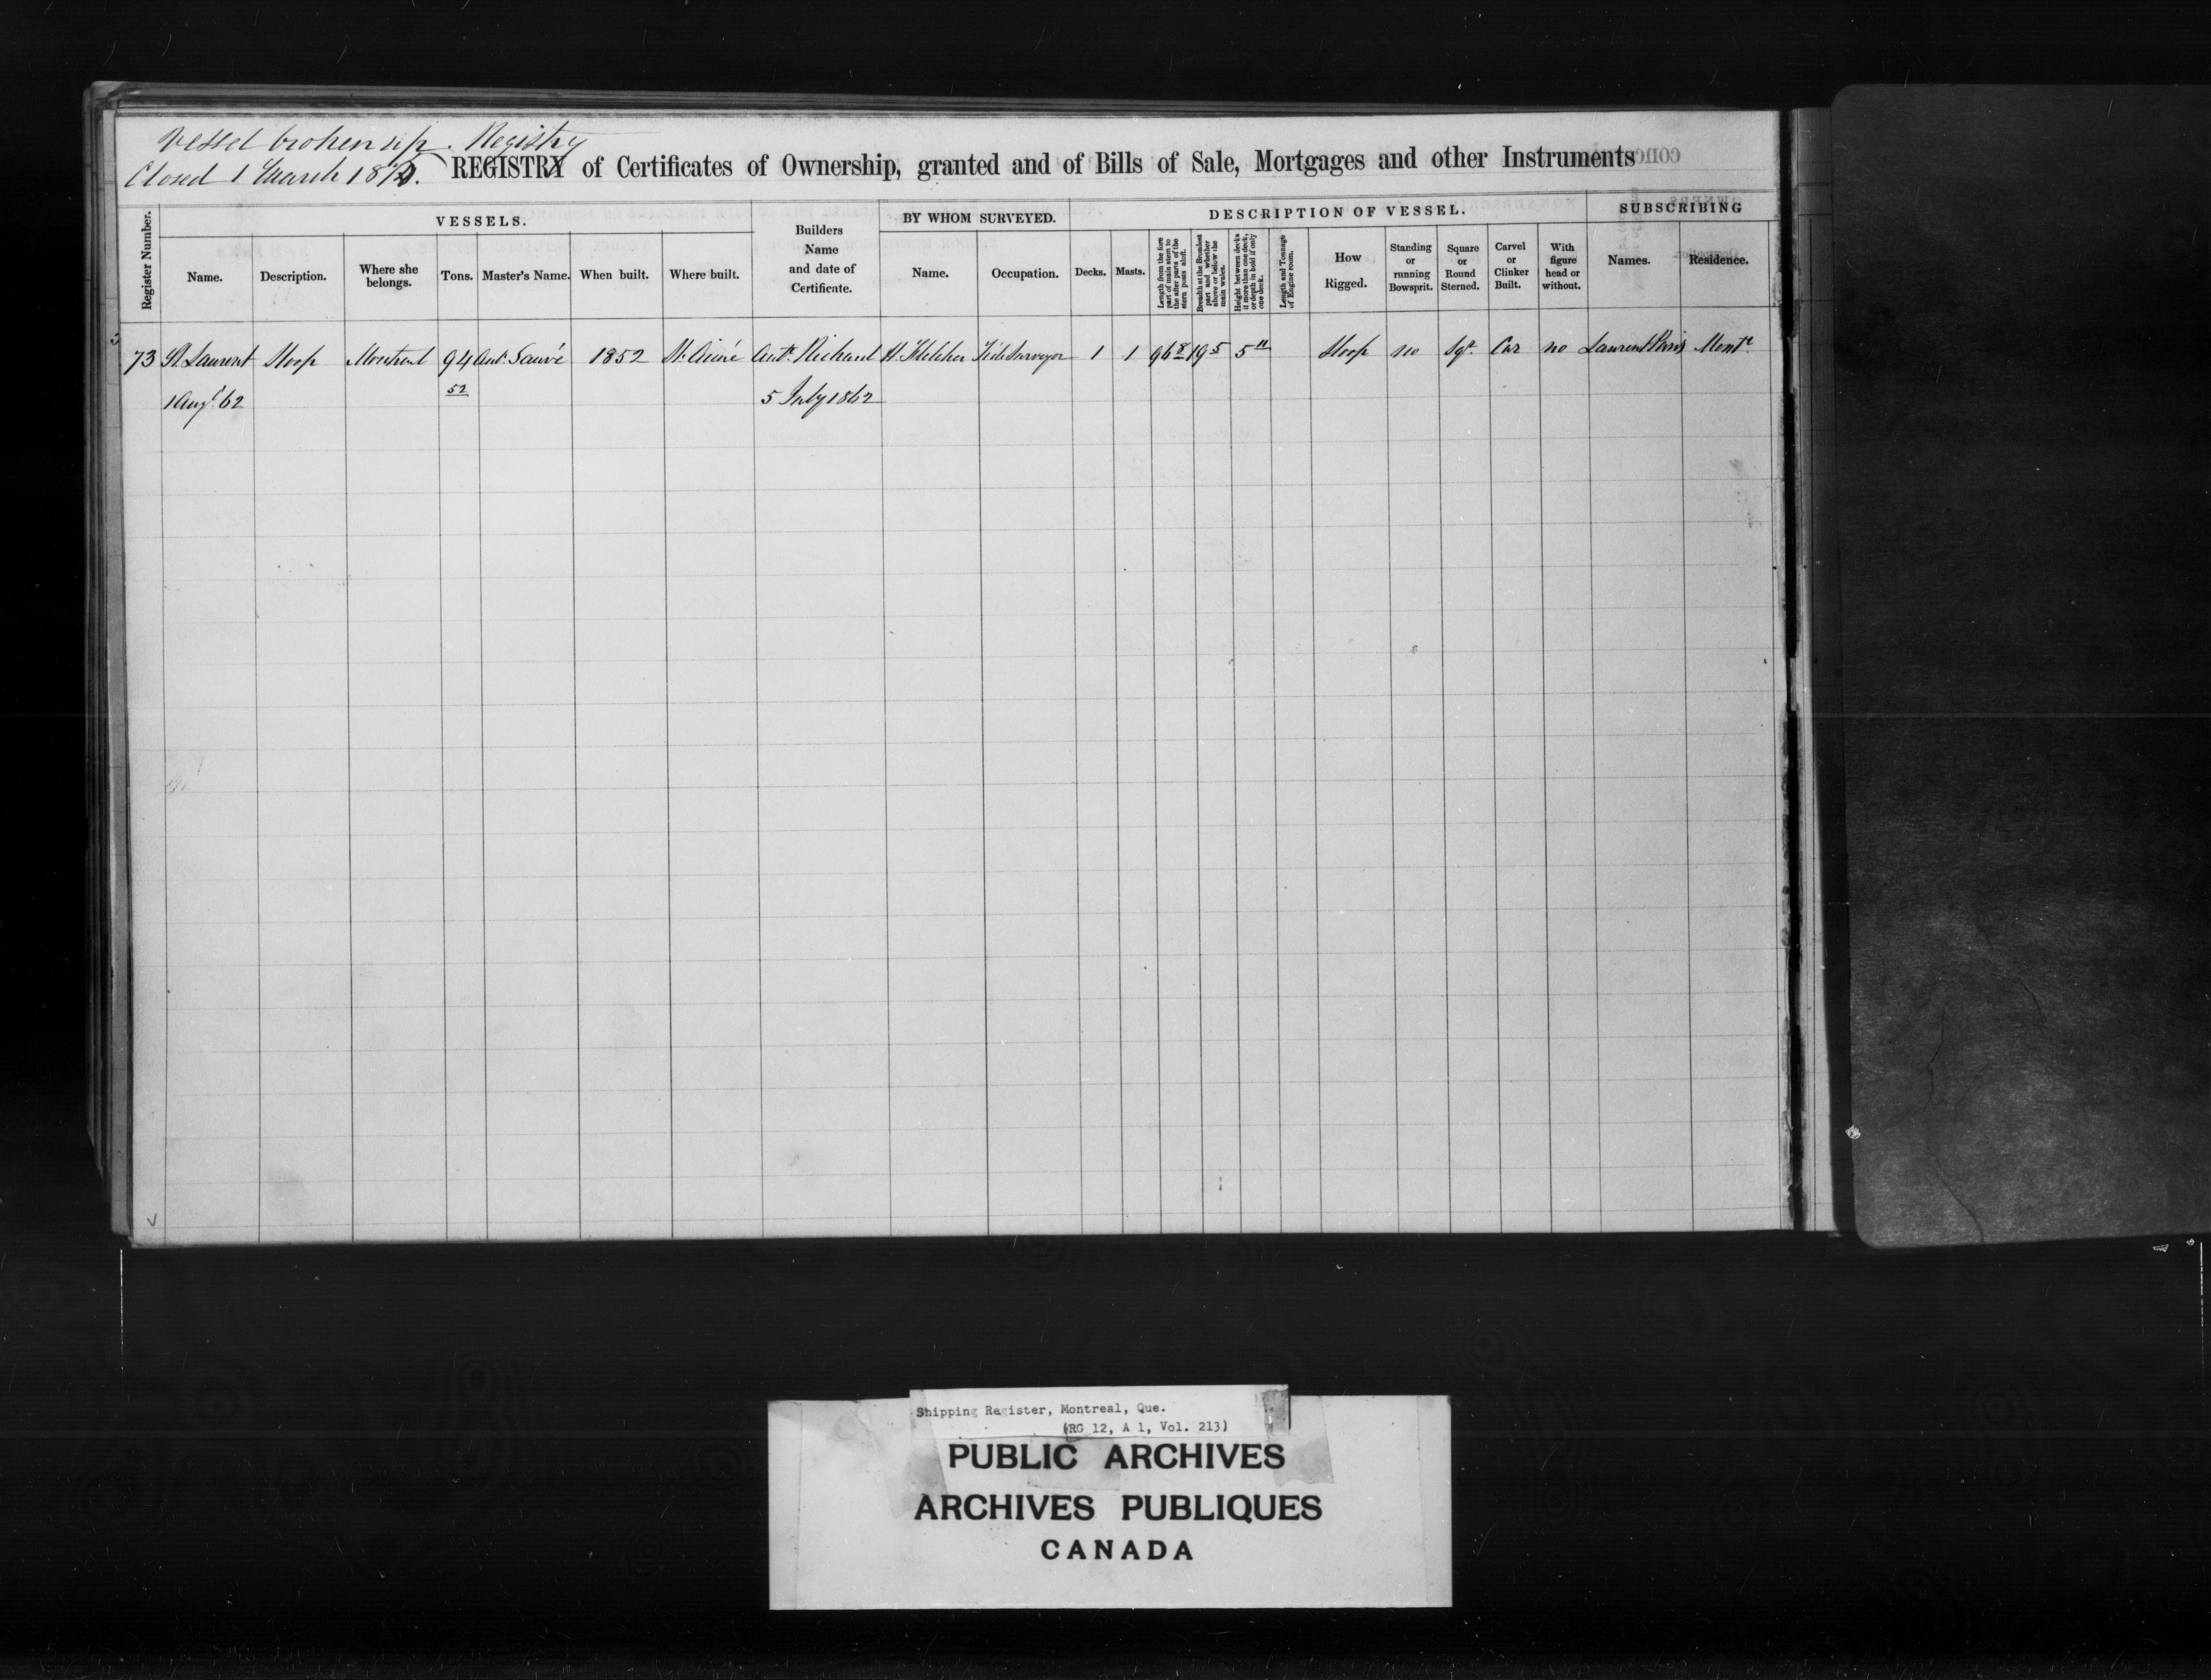 Vessel broken up. Registry
Closed 1 March 18
REGISTRY of Certificates of Ownership, granted and of Bills of Sale, Mortgages and other Instruments
Register Number.
VESSELS.
Name.
Description.
Where she belongs.
Tons.
Master's Name.
When built.
Where built.
Builders Name and date of Certificate.
BY WHOM SURVEYED.
Name.
Occupation.
DESCRIPTION OF VESSEL.
Decks.
Masts.
Length from the fore part of main stem to the after parts of the stern posts aloft.
Breadth at the Broadest part and whether above or below the main wales.
Height between decks if more than one deck, or depth in hold if only one deck.
Length and Tonnage of Engine room.
How Rigged.
Standing or running Bowsprit.
Square or Round Sterned.
Carvel or Clinker Built.
With figure head or without.
SUBSCRIBING
Names.
Residence.
73 St. Laurent Sloop Montreal 94 Ant. Sauvé 1852 St. Aimé Ant. Richard H. Tide Surveyor 1 1 96 8 19 5 5 11 Sloop no Sqr. Car no Laurent Paris Montl.
1 Augt. 62 52 5 July 1862
Shipping Register, Montreal, Que.
(RG 12, A 1, Vol. 213)
PUBLIC ARCHIVES
ARCHIVES PUBLIQUES
CANADA